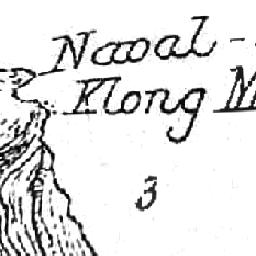 Naval -
Klong M
3